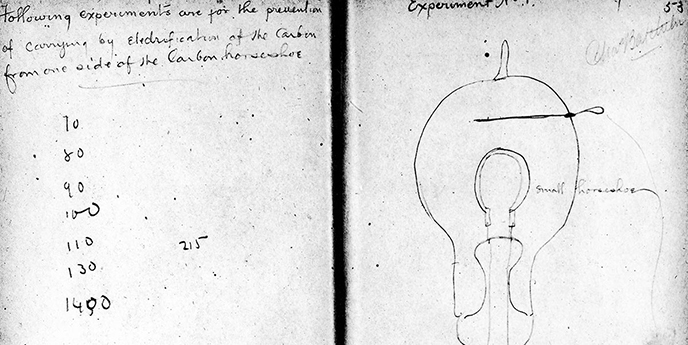 Following experiments are for the prevention
of carrying by Electrification of the Carbon
from one side of the Carbon horseshoe
70
80
90
100
110 215
130
1400
Experiment No. 1.
53
small horseshoe